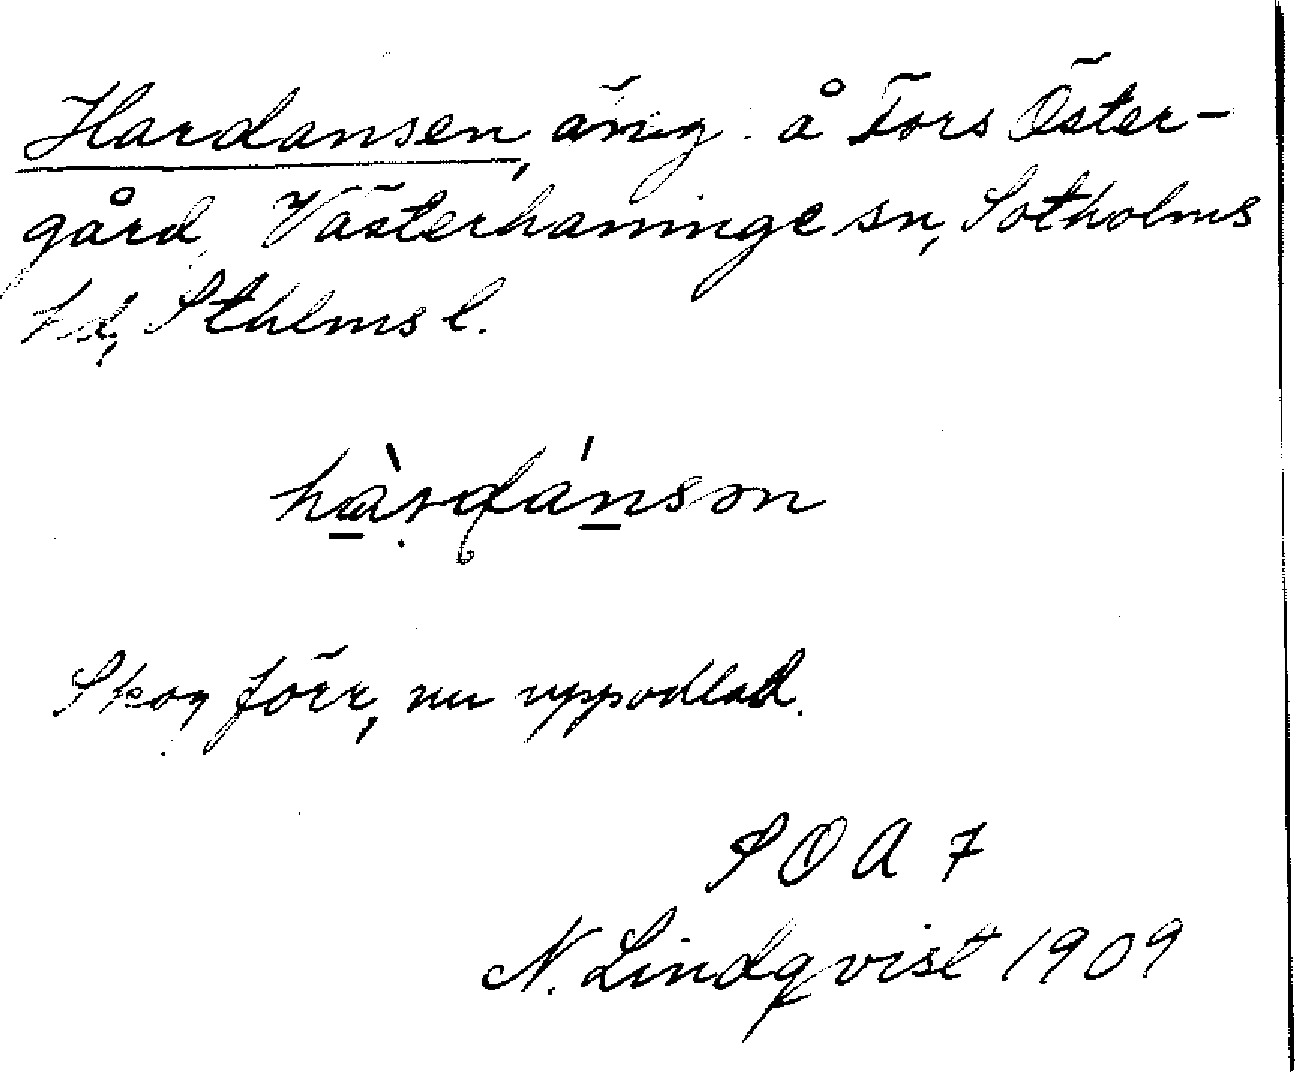 Hardansen, äng å Fors Öster-
gård, Västerhaninge sn, Sotholms
hd, Sthlms l.
Skog förr, nu uppodlad.
S O A 7
N. Lindqvist 1909